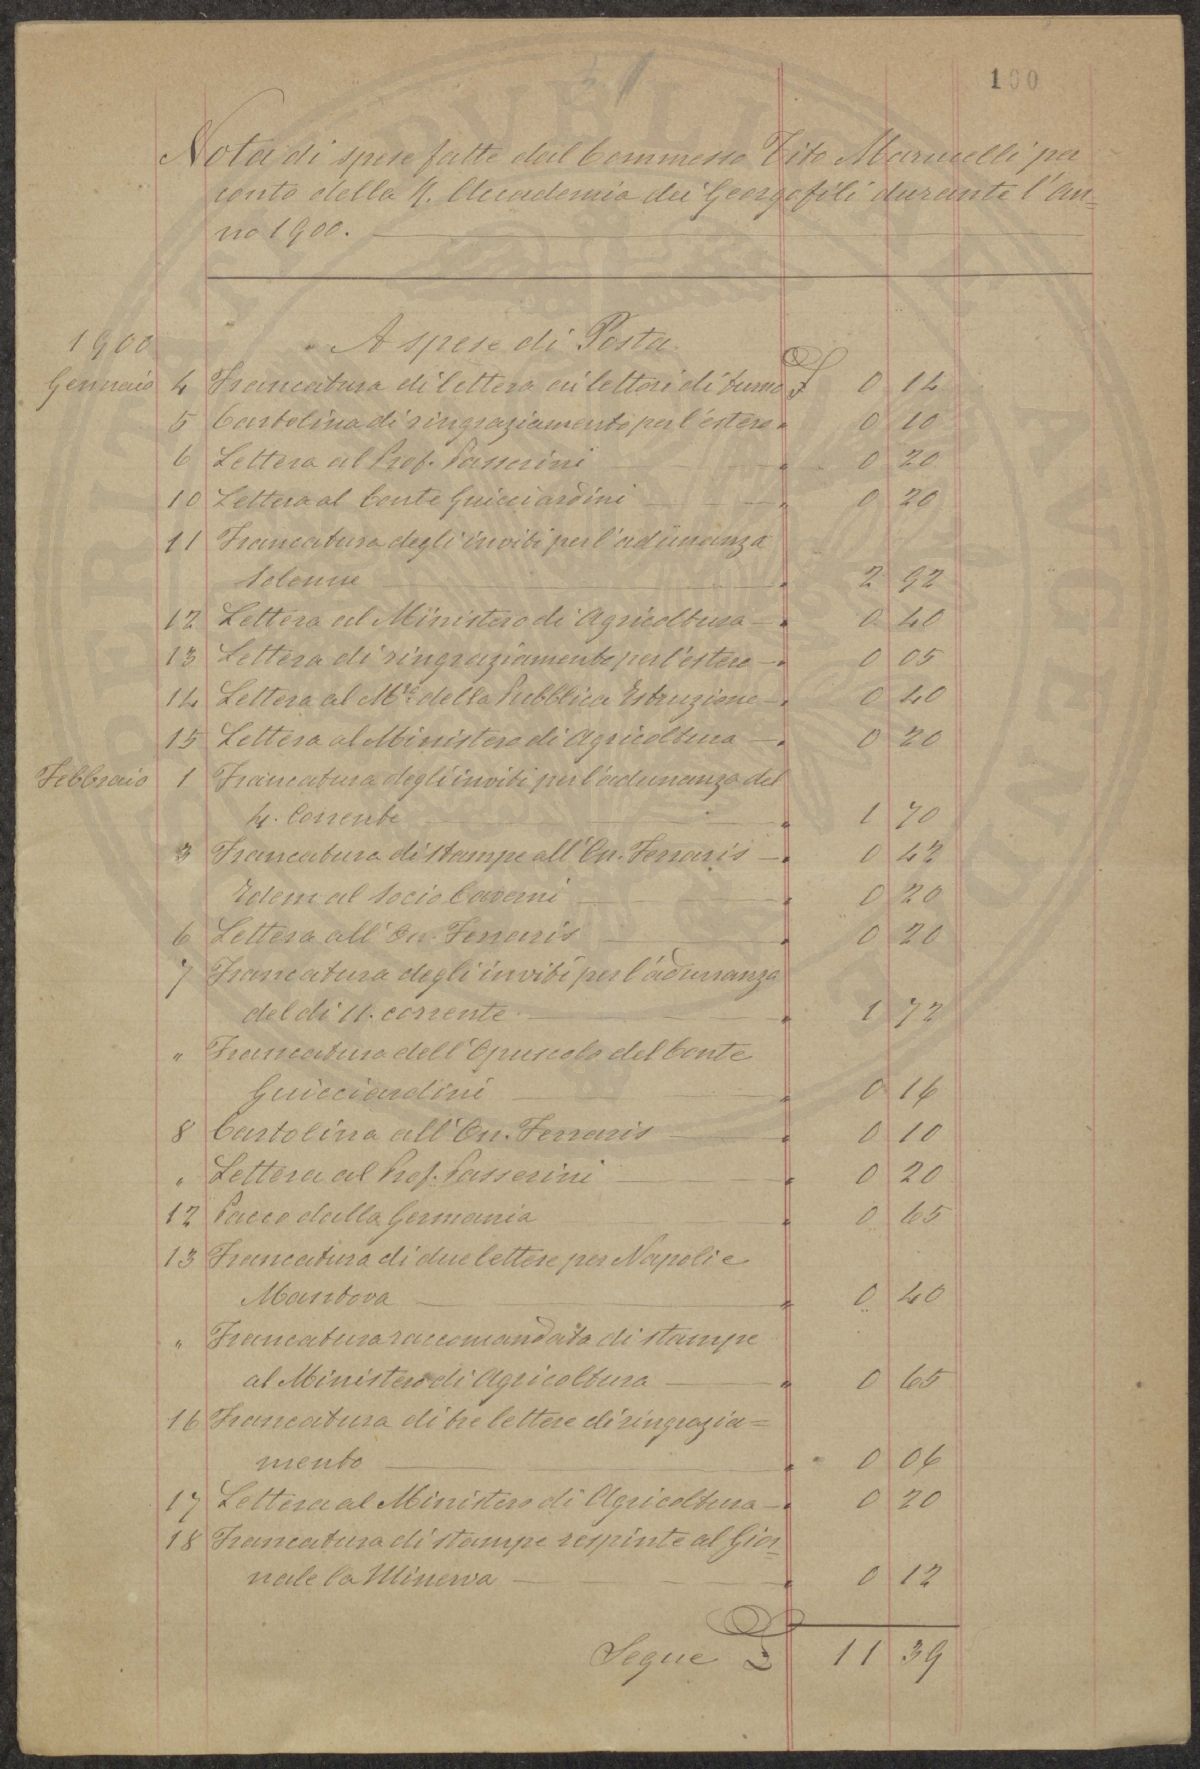 100
Nota di spese fatte dal Commesso Tito Marucelli per
conto della R. Accademia dei Georgofili durante l'an=
no 1900.
1900 A spese di Posta
Gennaio 4 Francatura di lettera ai lettori di turno £ 0 14
5 Cartolina di ringraziamento per l'estero " 0 10
6 Lettera al Prof. Passerini " 0 20
10 Lettera al Conte Guicciardini " 0 20
11 Francatura degli inviti per l'adunanza
Solenne " 2 92
12 Lettera al Ministero di Agricoltura " 0 40
13 Lettera di ringraziamento per l'estero " 0 05
14 Lettera al M.ro della Pubblica Istruzione " 0 40
15 Lettera al Ministero di Agricoltura " 0 20
Febbraio 1 Francatura degli inviti per l'adunanza del
4. Corrente " 1 70
3 Francatura di stampe all'On. Ferraris " 0 42
Idem al Socio Caverni " 0 20
6 Lettera all'On. Ferraris " 0 20
7 Francatura degli inviti per l'adunanza
del dì 11. corrente " 1 72
" Francatura dell'Opuscolo del Conte
Guicciardini " 0 16
8 Cartolina all'On. Ferraris " 0 10
" Lettera al Prof. Passerini " 0 20
12 Pacco dalla Germania " 0 65
13 Francatura di due lettere per Napoli e
Mantova " 0 40
" Francatura raccomandata di stampe
al Ministero di Agricoltura " 0 65
16 Francatura di tre lettere di ringrazia=
mento " 0 06
17 Lettera al Ministero di Agricoltura " 0 20
18 Francatura di stampe respinte al Gior=
nale la Minerva " 0 12
Segue £ 11 39